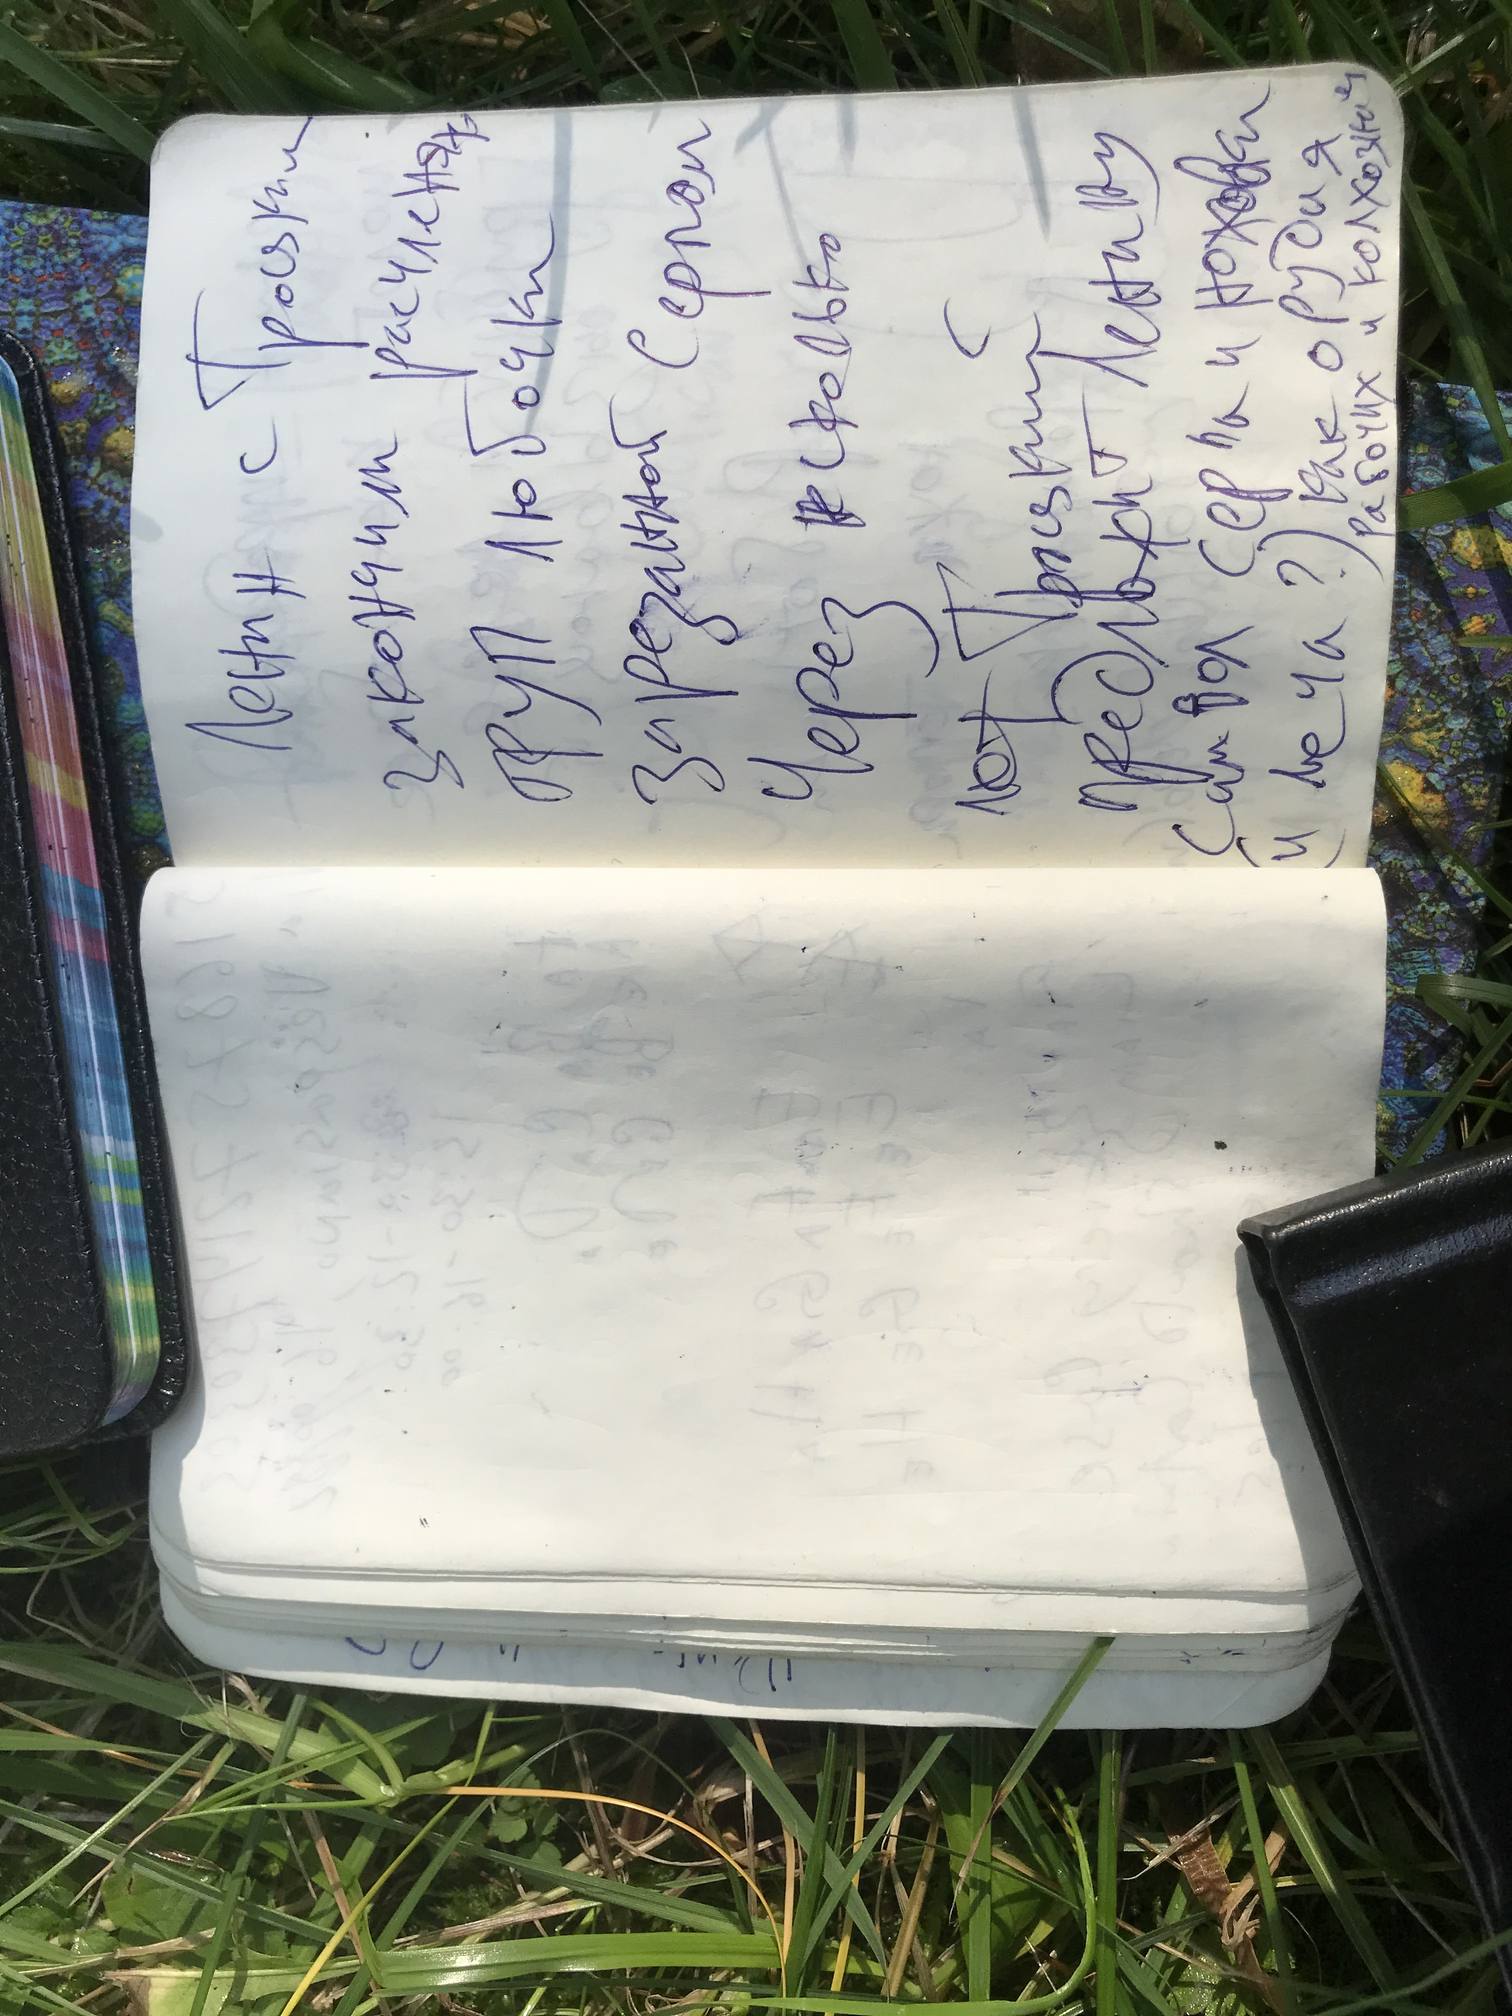 Ленин с Троцким
закончили расчленять
труп любочки
зарезанной серпом
Через несколько
лет Троцкий с
предложит Ленину
символ серпа и ножовки
(и меча?) как орудия
рабочих и колхозник